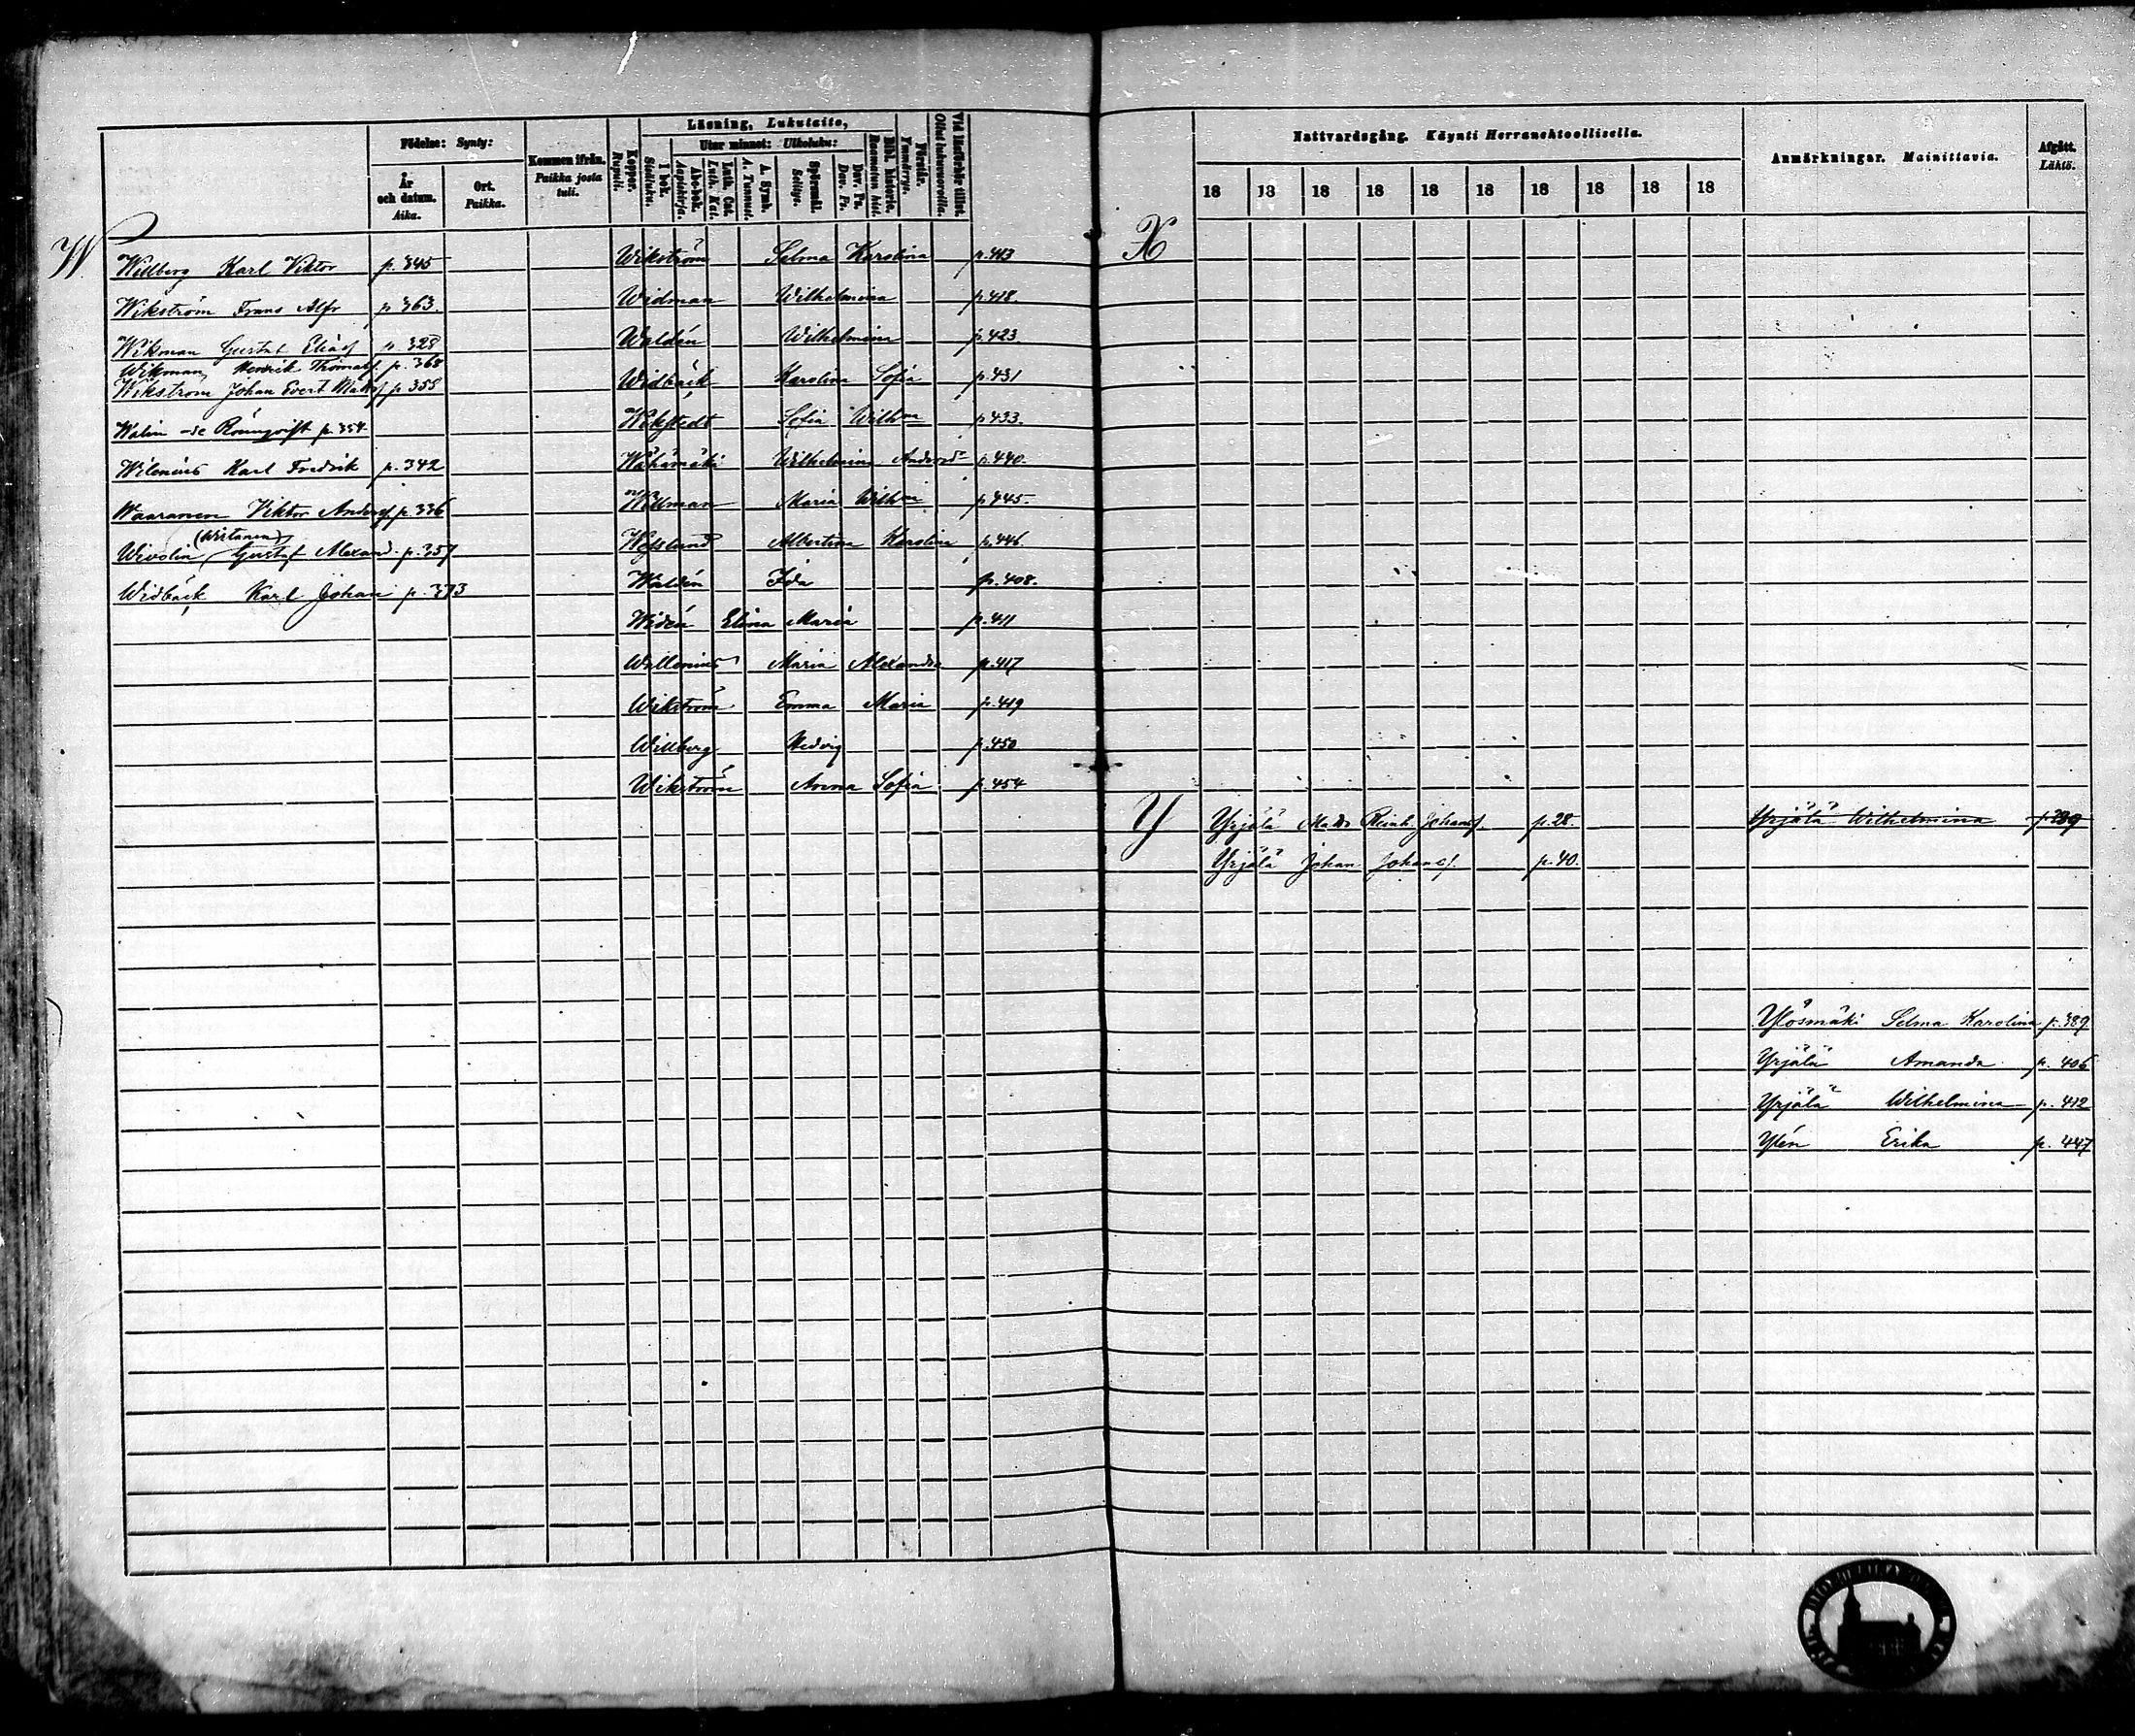 Läsning, Lukutaito,
Födelse: Synty:
Utur minnet: Ulkoluku:
Kommen ifrån.
Paikka josta
tuli.
År
och datum.
Aika.
Ort.
Paikka.
Koppor.
Rupuli.
I bok.
Sisäluku.
Abc-bok.
Aapiskirja.
Luth. Cat.
Luth. Kat.
A. Symb.
A. Tunnust.
Spörsmål.
Selitys.
Dav. Ps.
Dav. Ps.
Bibl. historia.
Raamatun hist.
Förstår.
Ymmärrys.
Vid läsförhör tillst.
Ollut lukuvuoroilla.
W
Willberg Karl Viktor p. 345
Wikström Frans Alfr p 363.
Wikman Gustaf Eliasf p. 328
Wikman, Henrik Thomasf. p. 368
Wikström Johan Evert Mattsf p 355
Walin -se Rönnqvist p. 354
Wilenius Karl Fredrik p. 342
Waaranen Viktor Andersf p. 336
(Wirtanen)
Wivolin Gustaf Alexand. p. 357
Widbäck Karl Johan p. 373
Wikström Selma Karolina p. 413
Widman Wilhelmina p. 418.
Waldén Wilhelmina p. 423
Widbäck Karolina Sofia p. 431
Wikstedt Sofia Wilhna p. 433.
Wähämäki Wilhelmina p. 440.
Willman Maria Wilhm p. 445.
Albertina Karolin p. 446.
Waldén Ida p. 408.
Widén Elina Maria p. 411
Wallenius Maria Alexandra p. 417
Wikström Emma Maria p. 419
Willberg Hedvig p. 450
Wikström Anna Sofia p. 454
Nattvardsgång. Käynti Herranehtoollisella.
Anmärkningar. Mainittavia.
Afgått.
Lähtö.
18 18 18 18 18 18 18 18 18 18
X
Y
Yrjälä Matts Reinh. Johansf. p. 28.
Yrjälä Wilhelmina p. 389
Yrjälä Johan Johansf. p. 40.
Ylösmäki Selma Karolina p. 389
Yrjälä Amanda p. 406
Yrjälä Wilhelmina p. 412
Ylén Erika p. 447